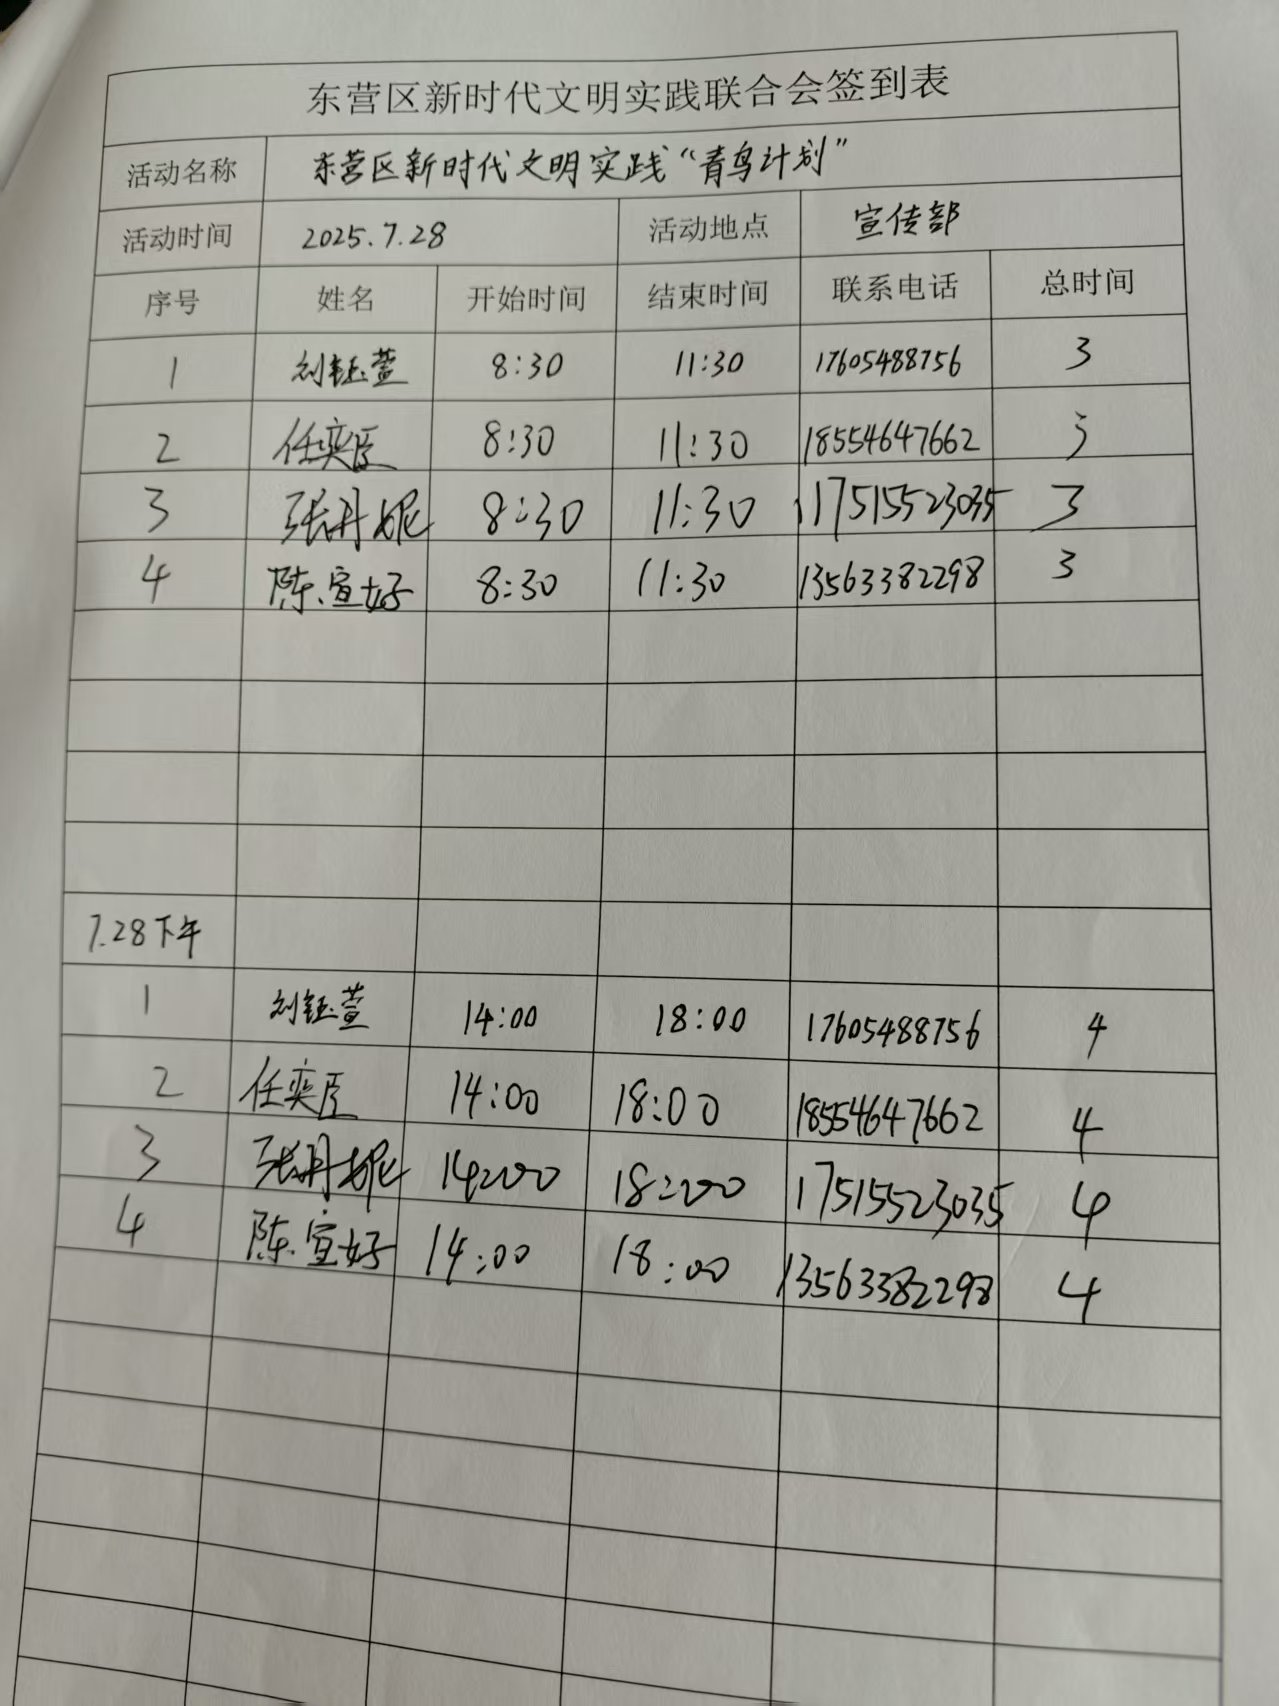 东营区新时代文明实践联合会签到表
活动名称 东营区新时代文明实践“青鸟计划”
活动时间 2025.7.28 活动地点 宣传部
序号 姓名 开始时间 结束时间 联系电话 总时间
1 刘钰萱 8:30 11:30 17605488756 3
2 任奕臣 8:30 11:30 18554647662 3
3 张丹妮 8:30 11:30 17515523035 3
4 陈宣好 8:30 11:30 13563382298 3
7.28下午
1 刘钰萱 14:00 18:00 17605488756 4
2 任奕臣 14:00 18:00 18554647662 4
3 张丹妮 14:00 18:00 17515523035 4
4 陈宣好 14:00 18:00 13563382298 4